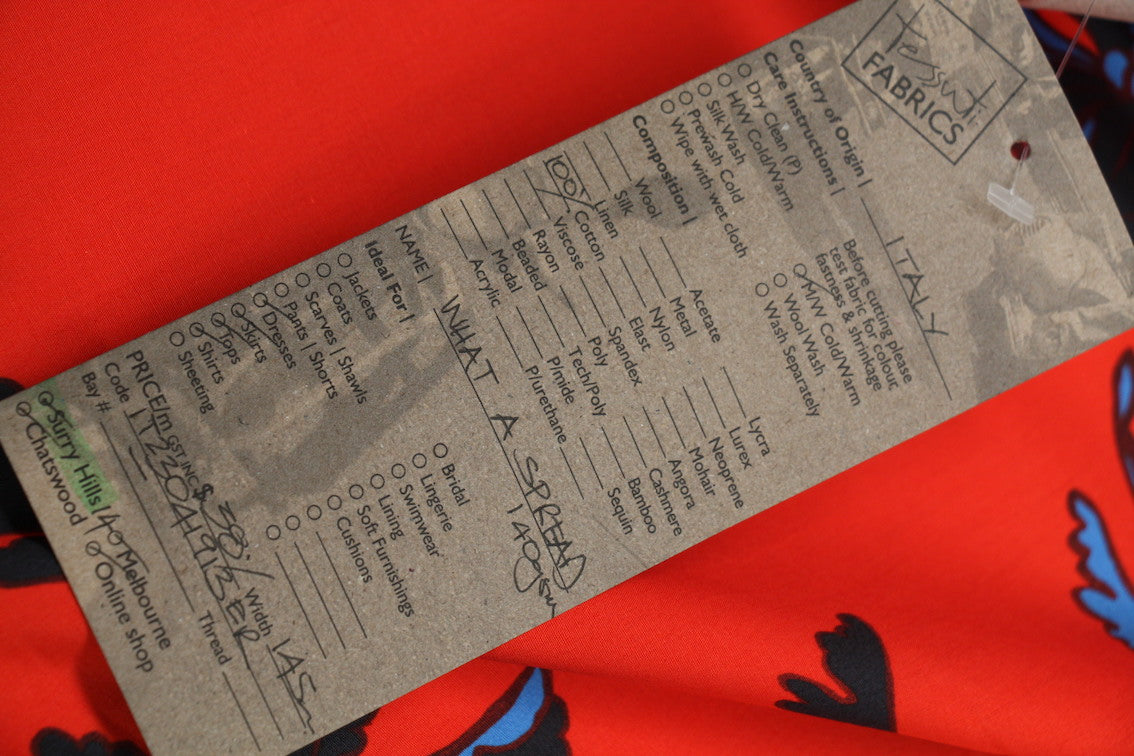 Tessuti
FABRICS
Country of Origin | ITALY
Care Instructions |
Dry Clean (P)
H/W Cold/Warm
Silk Wash
Prewash Cold
Wipe with wet cloth
Before cutting please
test fabric for colour
fastness & shrinkage
M/W Cold/Warm
Wool Wash
Wash Separately
Composition |
Wool
Silk
Linen
100% Cotton
Viscose
Rayon
Beaded
Modal
Acrylic
Acetate
Metal
Nylon
Elast
Spandex
Poly
Tech/Poly
P/mide
P/urethane
Lycra
Lurex
Neoprene
Mohair
Angora
Cashmere
Bamboo
Sequin
NAME | WHAT A SPREAD
140gsm
Ideal For |
Jackets
Coats
Scarves | Shawls
Pants | Shorts
Dresses
Skirts
Tops
Shirts
Sheeting
Bridal
Lingerie
Swimwear
Lining
Soft Furnishings
Cushions
PRICE/m GST INC $ 38/- Width 145
Code
Bay #
Thread
Surry Hills
Chatswood
Melbourne
Online shop